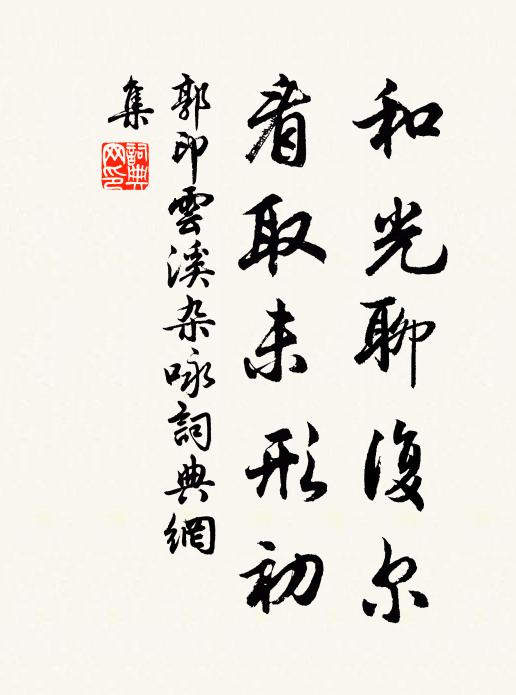 和光聊復尔
看取未形初
郭印雲溪杂咏詞典網
集
詞典网印